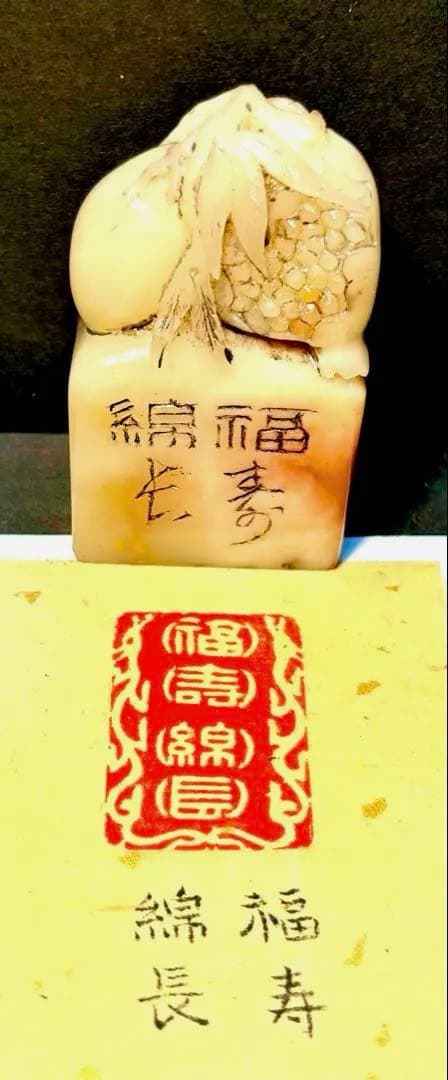 福寿
綿长
福
壽
綿
長
福寿
綿長